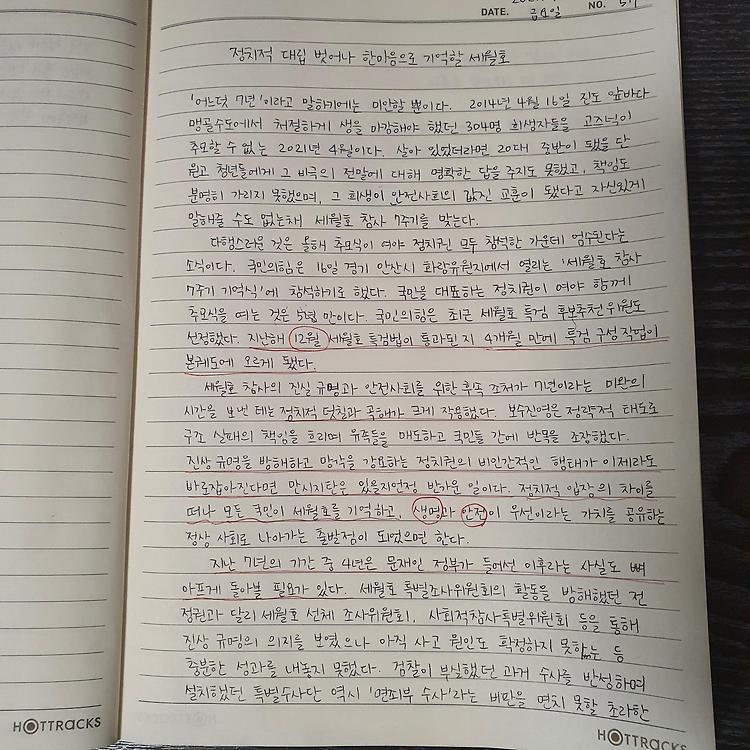 DATE. 금요일 NO. 57
정치적 대립 벗어나 한마음으로 기억할 세월호
'어느덧 7년'이라고 말하기에는 미안할 뿐이다. 2014년 4월 16일 진도 앞바다
맹골수도에서 처절하게 생을 마감해야 했던 304명 희생자들을 고즈넉이
추모할 수 없는 2021년 4월이다. 살아 있었더라면 20대 중반이 됐을 단
원고 청년들에게 그 비극의 전말에 대해 명확한 답을 주지도 못했고, 책임도
분명히 가리지 못했으며, 그 희생이 안전사회의 값진 교훈이 됐다고 자신있게
말해줄 수도 없는채 세월호 참사 7주기를 맞는다.
다행스러운 것은 올해 추모식이 여야 정치권 모두 참석한 가운데 엄수된다는
소식이다. 국민의힘은 16일 경기 안산시 화랑유원지에서 열리는 '세월호 참사
7주기 기억식'에 참석하기로 했다. 국민을 대표하는 정치권이 여야 함께
추모식을 여는 것은 5년 만이다. 국민의힘은 최근 세월호 특검 후보추천위원도
선정했다. 지난해 12월 세월호 특검법이 통과된 지 4개월 만에 특검 구성 작업이
본궤도에 오르게 됐다.
세월호 참사의 진실 규명과 안전사회를 위한 후속 조처가 7년이라는 미완의
시간을 보낸 데는 정치적 덧칠과 곡해가 크게 작용했다. 보수진영은 정략적 태도로
구조 실패의 책임을 흐리며 유족들을 매도하고 국민들 간에 반목을 조장했다.
진상 규명을 방해하고 망각을 강요하는 정치권의 비인간적인 행태가 이제라도
바로잡아진다면 만시지탄은 있을지언정 반가운 일이다. 정치적 입장의 차이를
떠나 모든 국민이 세월호를 기억하고, 생명과 안전이 우선이라는 가치를 공유하는
정상 사회로 나아가는 출발점이 되었으면 한다.
지난 7년의 기간 중 4년은 문재인 정부가 들어선 이후라는 사실도 뼈
아프게 돌아볼 필요가 있다. 세월호 특별조사위원회의 활동을 방해했던 전
정권과 달리 세월호 선체 조사위원회, 사회적참사특별위원회 등을 통해
진상 규명의 의지를 보였으나 아직 사고 원인도 확정하지 못하는 등
충분한 성과를 내놓지 못했다. 검찰이 부실했던 과거 수사를 반성하며
설치했던 특별수사단 역시 '면죄부 수사'라는 비판을 면치 못할 초라한
HOTTRACKS
HOTTRACKS